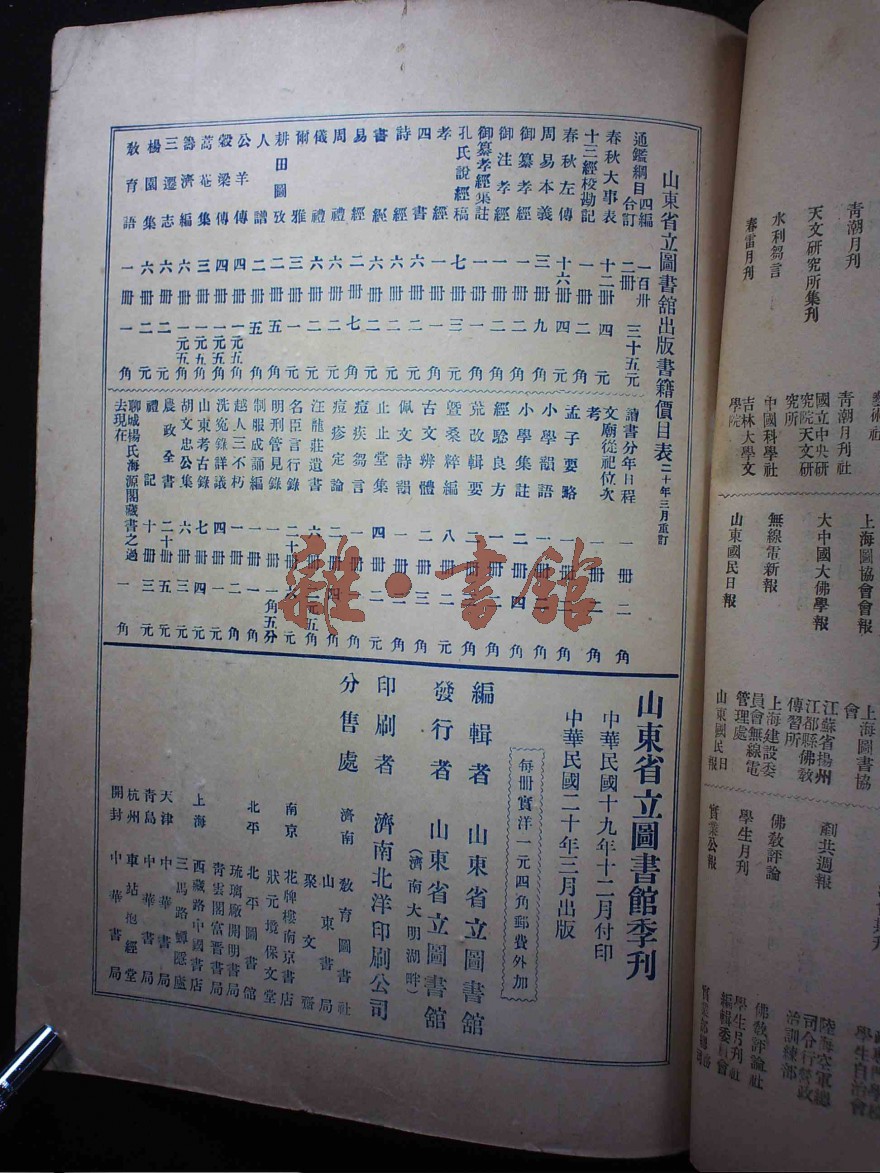 青潮月刊 青潮月刊社
天文研究所集刊 國立中央研究院天文研究所
水利芻言 中國科學社
春雷月刊 吉林大學文學院
上海圖協會會報 上海圖書協會
大中國大佛學報 江蘇省揚州江都縣佛敎傳習所
無線電新報 上海建設委員會無線電管理處
山東國民日報 山東國民日報
剷共週報 陸海空軍總司令行營政治訓練部
佛敎評論 佛敎評論社
學生月刊 學生月刊社編輯委員會
實業公報
山東省立圖書館出版書籍價目表 二十年三月重訂
通鑑綱目四編 合訂二冊 一百冊 三十五元
春秋大事表 十二冊 四元
十三經校勘記 一冊 二角
春秋左傳 十六冊 四元
周易本義 三冊 九角
御纂孝經 一冊 二角
御注孝經 一冊 二角
御纂孝經集註 一冊 一角
孔氏說經稿 七冊 三角
孝經 一冊 一角
四書 六冊 二元
詩經 六冊 二元
書經 六冊 二元
易經 二冊 七角
周禮 六冊 二元
儀禮 六冊 二元
爾雅 三冊 一元
耕田圖攷 二冊 五角
人譜 二冊 五角
公羊傳 四冊 一元五角
穀梁傳 四冊 一元五角
蒿菴集 三冊 一元五角
籌濟編 六冊 一元五角
三遷志 六冊 二元
楊園集 六冊 二元
敎育語 一冊 一角
讀書分年日程 一冊 二角
文廟從祀位次考 一冊 二角
孟子要略 一冊 二角
小學韻語 一冊 二角
小學集註 二冊 四角
經驗良方 一冊 二角
荒政輯要 二冊
蠶桑粹編 八冊 二元
古文辨體 二冊 三角
佩文詩韻 一冊 二角
止止堂集 四冊 二元
痘疾芻言 一冊 角
痘疹定論 二冊 四角
汪龍莊遺書 六冊 二元五角
名臣言行錄 二十冊 元
明刑管見錄 一冊 一角五分
制服成誦編 一冊 一角
越人三不朽 一冊 二角
洗寃錄詳議 四冊 一元
山東考古錄 七冊 四元
胡文忠公集 六冊 三元
農政全書 二十冊 五元
禮記 十冊 三元
聊城楊氏海源閣藏書之過去現在 一角
山東省立圖書館季刊
中華民國十九年十二月付印
中華民國二十年三月出版
每冊實洋一元四角郵費外加
編輯者 山東省立圖書館
發行者 山東省立圖書館
(濟南大明湖畔)
印刷者 濟南北洋印刷公司
分售處
濟南 敎育圖書社
山東書局
聚文齋
南京 花牌樓南京書店
狀元境保文堂
北平 北平圖書館
琉璃廠開明書局
青雲閣富晉書局
上海 西藏路中國書店
三馬路蟬隱廬
天津 中華書局
青島 中華書局
杭州 車站抱經堂
開封 中華書局
雜·書館